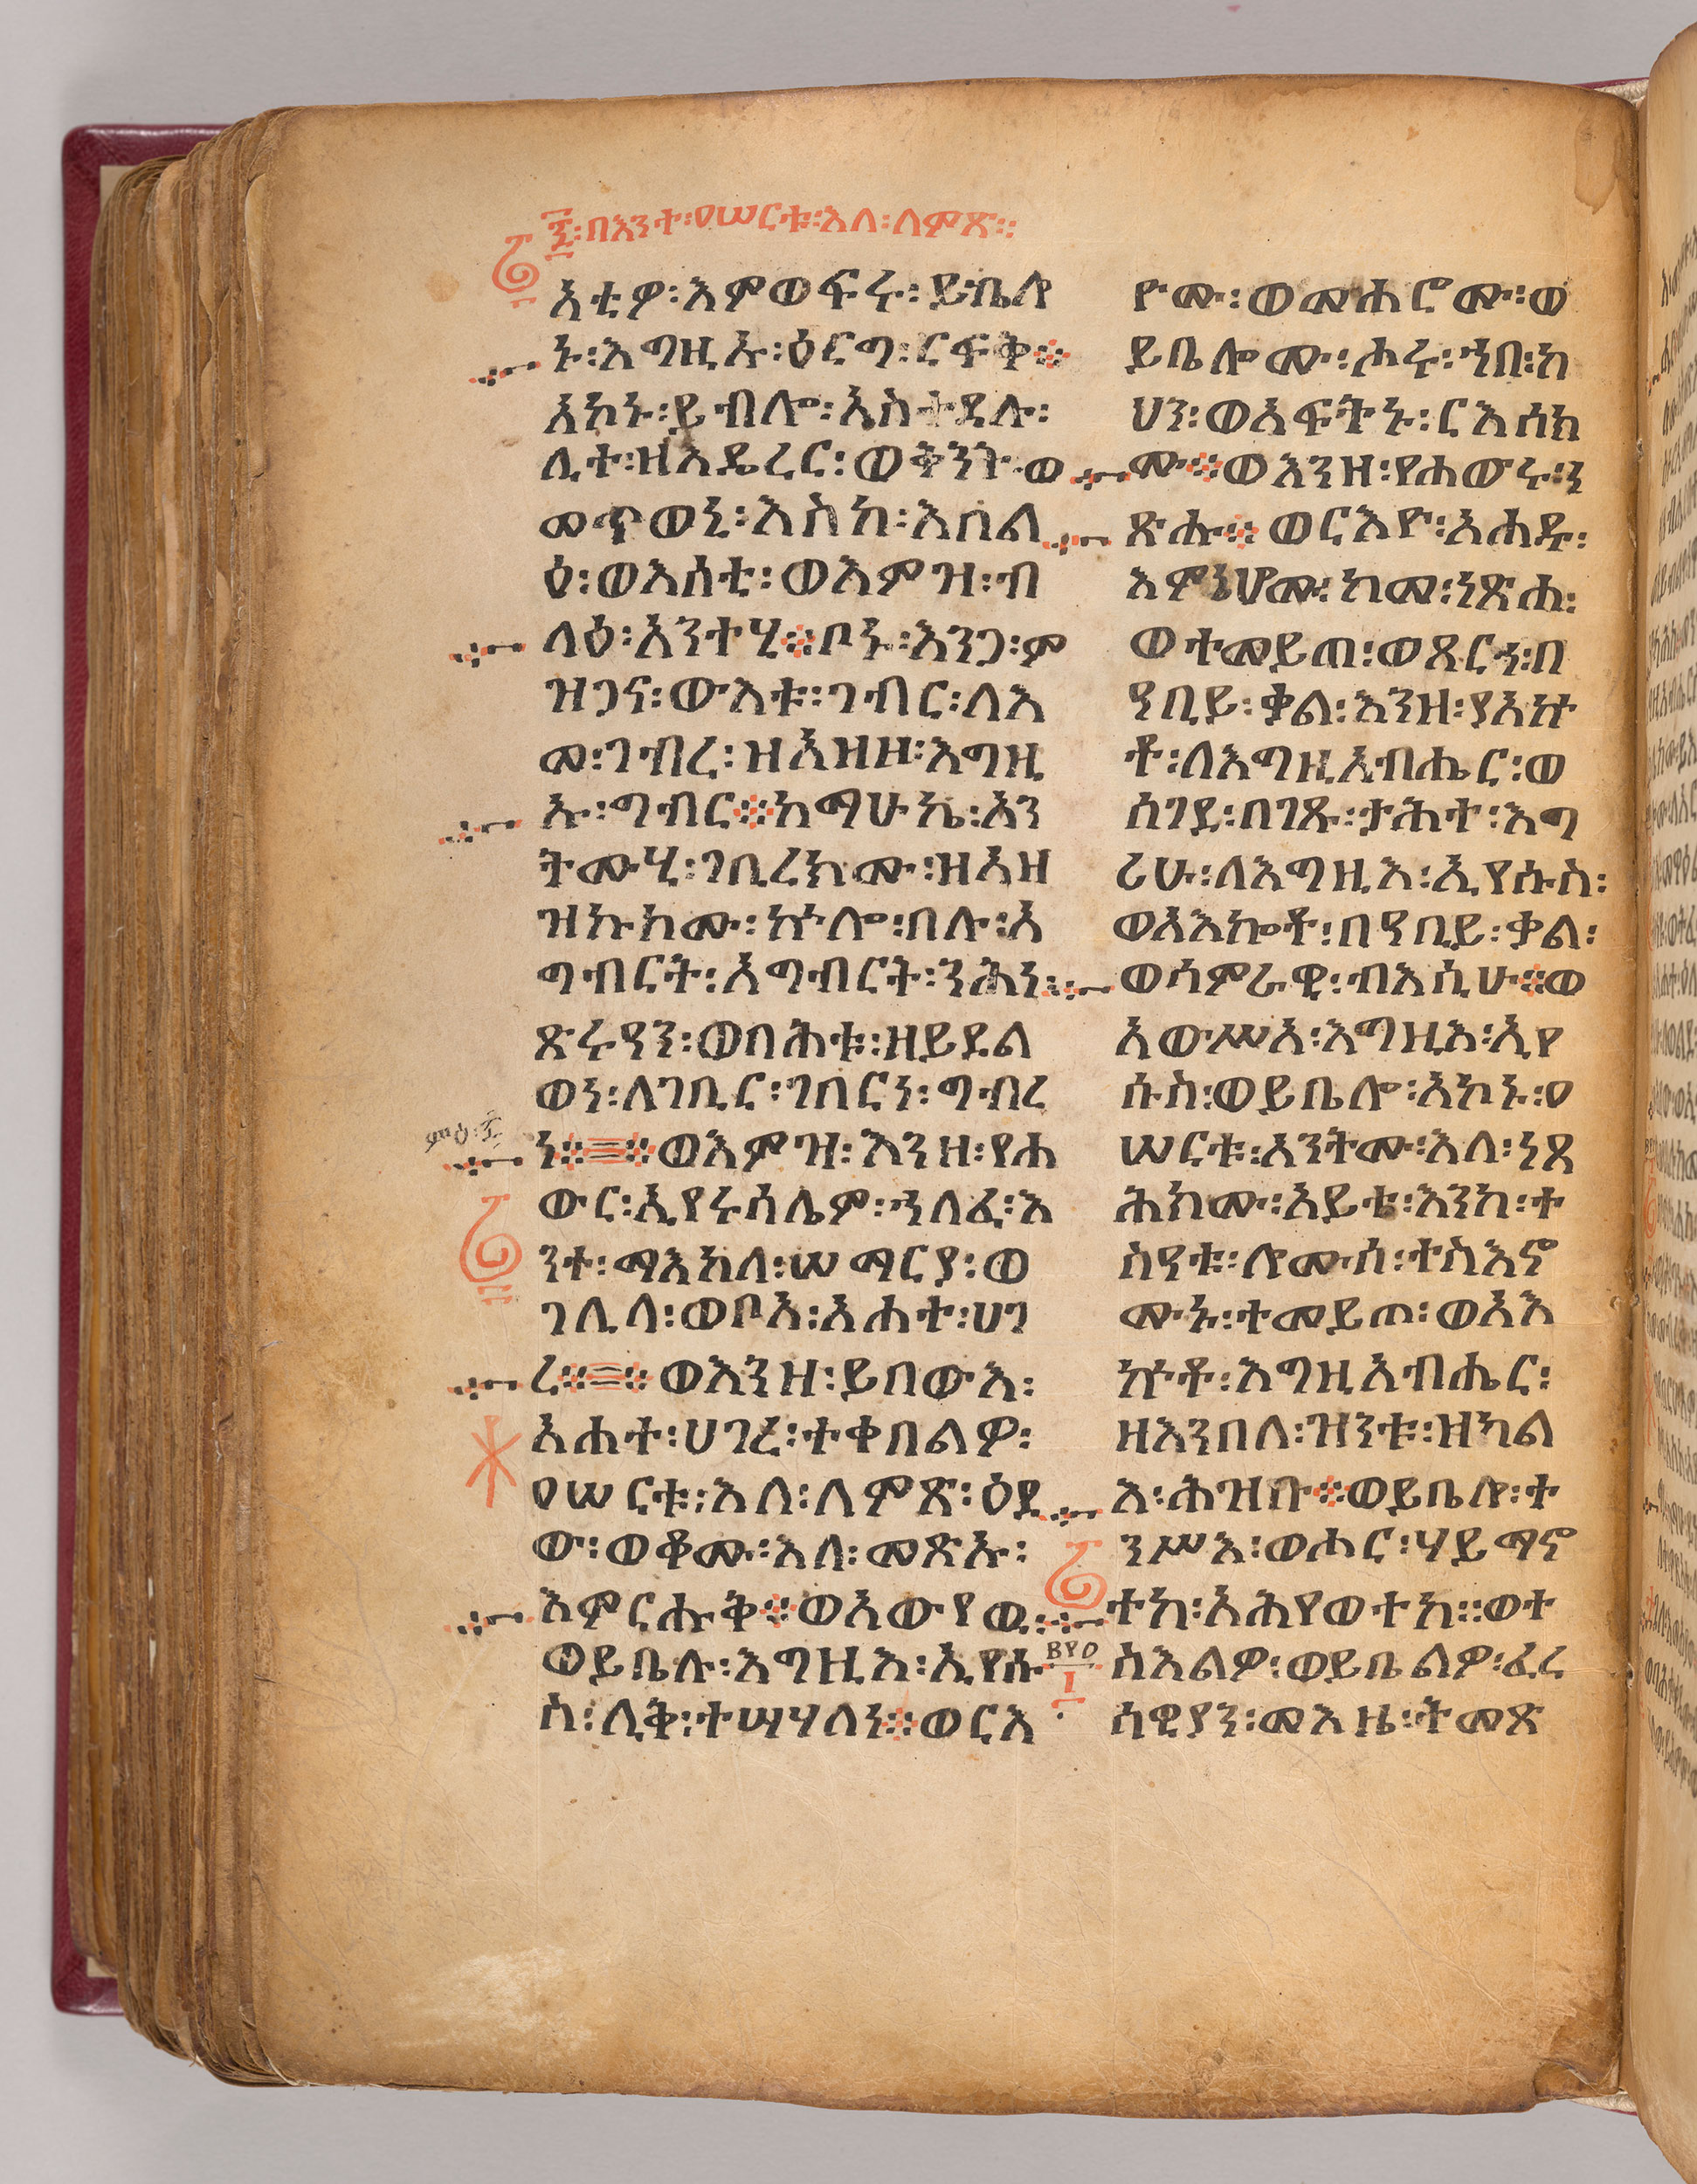 ፷፡በእንተ፡ዐሠርቱ፡እለ፡ለምጽ።
አቲዎ፡እምወፍሩ፡ይቤሎ
ኑ፡እግዚኡ፡ዕርግ፡ርፍቅ፨
አኮኑ፡ይብሎ፡አስተዴሉ፡
ሊተ፡ዘእዴረር፡ወቅንት፡ወ
መጥወኒ፡እስከ፡እበል
ዕ፡ወእሰቲ፡ወእምዝ፡ብ
ላዕ፡አንተሂ፨ቦኑ፡እንጋ፡ም
ዝጋና፡ውእቱ፡ገብር፡ለእ
መ፡ገብረ፡ዝአዝዞ፡እግዚ
ኡ፡ግብር፨ከማሁኬ፡አን
ትሙሂ፡ገቢረክሙ፡ዝአዘ
ዝኩክሙ፡ኵሎ፡በሉ፡አ
ግብርት፡አግብርት፡ንሕነ፡
ጽሩዓን፡ወባሕቱ፡ዘይደል
ወነ፡ለገቢር፡ገበርነ፡ግብረ
ነ፨፨ወእምዝ፡እንዘ፡የሐ
ውር፡ኢየሩሳሌም፡ኀለፈ፡እ
ንተ፡ማእከለ፡ሠማርያ፡ወ
ገሊላ፡ወቦአ፡አሐተ፡ሀገ
ረ፨፨ወእንዘ፡ይበውእ፡
አሐተ፡ሀገረ፡ተቀበልዎ፡
ዐሠርቱ፡እለ፡ለምጽ፡ዕደ
ው፡ወቆሙ፡እለ፡መጽኡ፡
እምርሑቅ፨ወአውየዉ፡
ወይቤሉ፡እግዚእ፡ኢየሱ
ስ፡ሊቅ፡ተሣሃለነ፨ወርእ
ዮሙ፡ወመሐሮሙ፡ወ
ይቤሎሙ፡ሖሩ፡ኀበ፡ካ
ህን፡ወአፍትኑ፡ርእሰክ
ሙ፨ወእንዘ፡የሐውሩ፡ነ
ጽሑ፨ወርእዮ፡አሐዱ፡
እምኔሆሙ፡ከመ፡ነጽሐ፡
ወተመይጠ፡ወጸርኀ፡በ
ዓቢይ፡ቃል፡እንዘ፡ያአኵ
ቶ፡ለእግዚአብሔር፡ወ
ሰገደ፡በገጹ፡ታሕተ፡እግ
ሪሁ፡ለእግዚእ፡ኢየሱስ፡
ወአእኰቶ፡በዓቢይ፡ቃል፡
ወሳምራዊ፡ብእሲሁ፨ወ
አውሥአ፡እግዚእ፡ኢየ
ሱስ፡ወይቤሎ፡አኮኑ፡ዐ
ሠርቱ፡አንትሙ፡እለ፡ነጻ
ሕክሙ፡አይቴ፡እንከ፡ተ
ስዓቱ፡ሎሙሰ፡ተስእኖ
ሙኑ፡ተመይጦ፡ወአእ
ኵቶ፡እግዚአብሔር፡
ዘእንበለ፡ዝንቱ፡ዝካል
እ፡ሕዝቡ፨ወይቤሎ፡ተ
ንሥእ፡ወሖር፡ሃይማኖ
ትከ፡አሕየወተከ።ወተ
ስእልዎ፡ወይቤልዎ፡ፈሪ
ሳዊያን፡መእዜ፡ትመጽ